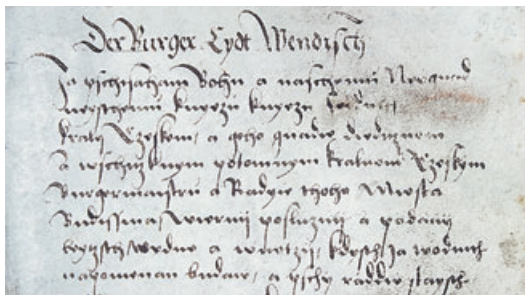 Der Burger Eydt Wendisch
Ja pschisaham Bohu a naschemu Neygnad
neyschemu knyezu knyezu
kralu Czeskem, a geho gnadie diedicznem
a wschitknym potomnym kraluom Czeskym
Burgermaistru a Radzie thoho Miesta
Budissina, Wierny posluzny a podany
beytzsch werdne a wnotzy, kdesch Ja wodnich
napomenan budaw, a pschy raddzie stayscz